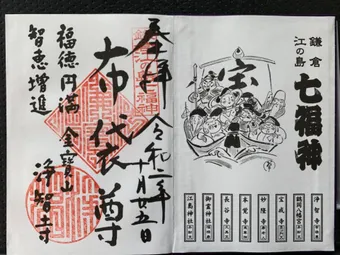 鎌倉
江の島
七福神
宝
浄智寺
鶴岡八幡宮
宝戒寺
妙隆寺
本覚寺
長谷寺
御霊神社
江島神社
奉拝
令和二年
十一月廿五日
布袋尊
金寶山
浄智寺
福徳円満
智恵増進